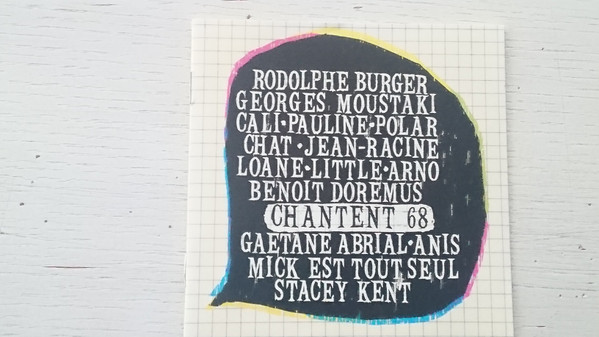 RODOLPHE BURGER
GEORGES MOUSTAKI
CALI•PAULINE•POLAR
CHAT•JEAN-RACINE
LOANE•LITTLE•ARNO
BENOIT DOREMUS
CHANTENT 68
GAETANE ABRIAL•ANIS
MICK EST TOUT SEUL
STACEY KENT